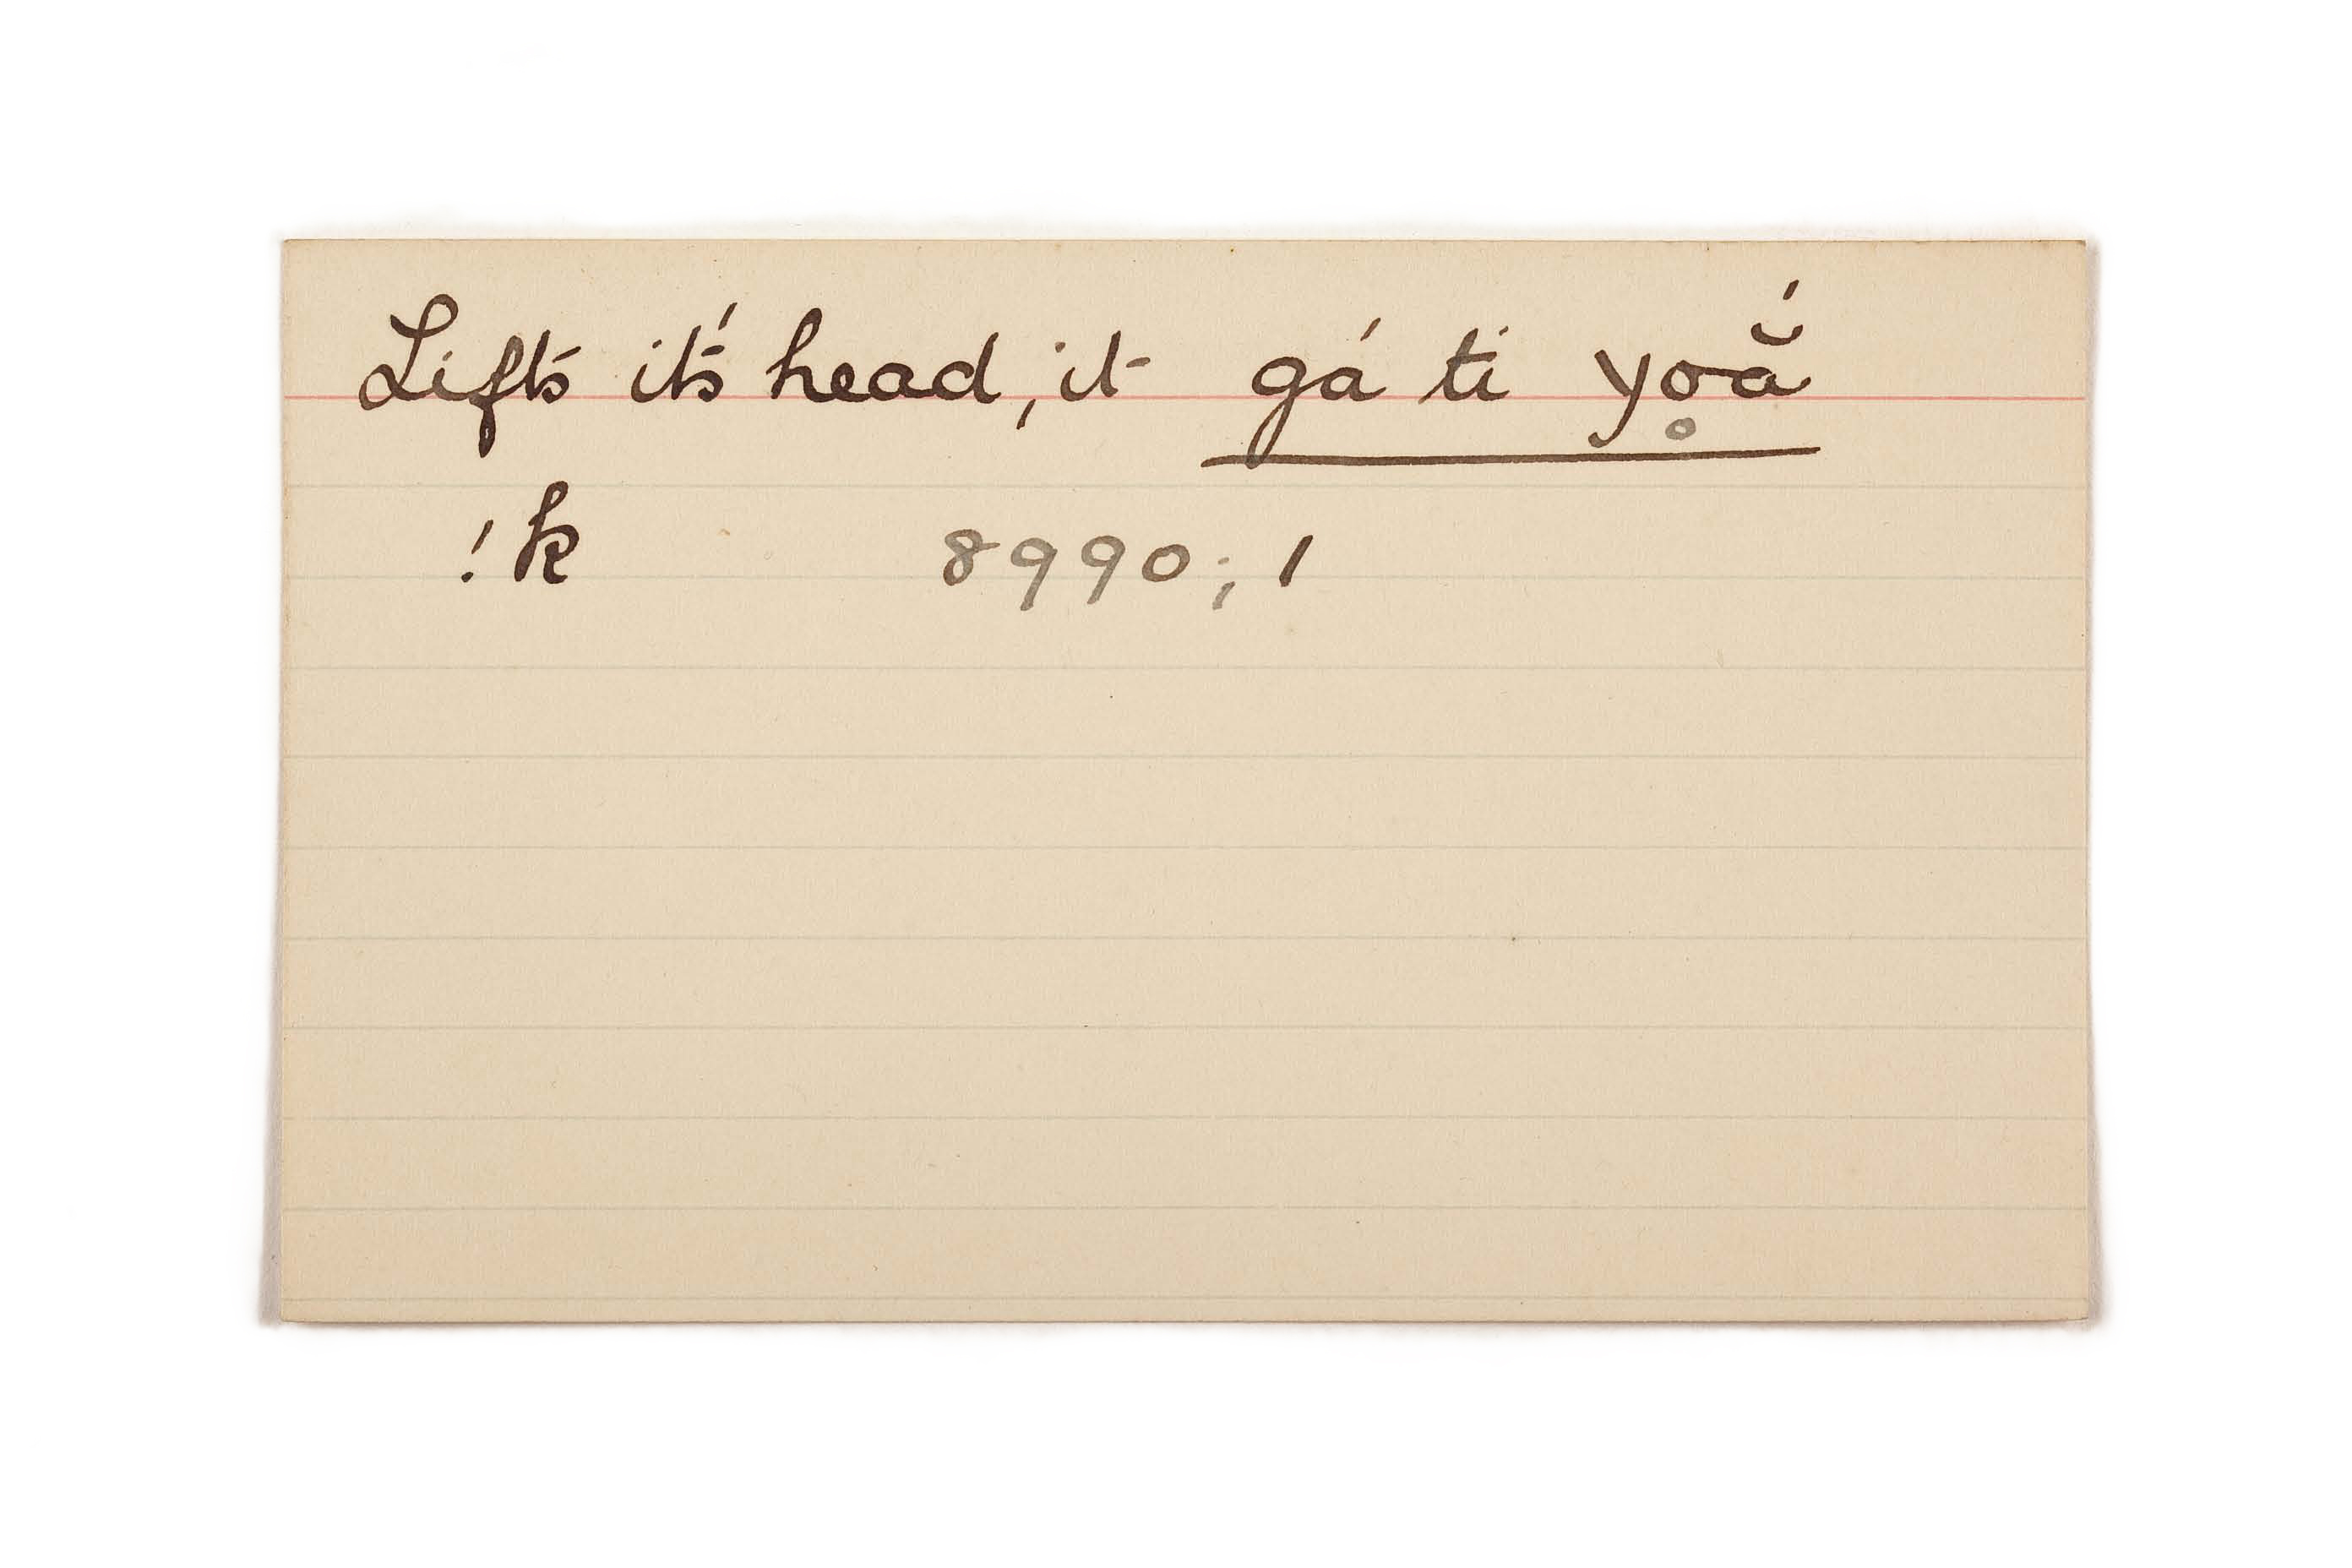 Lifts it's head, it gá ti yo̥ắ
!k 8990; 1